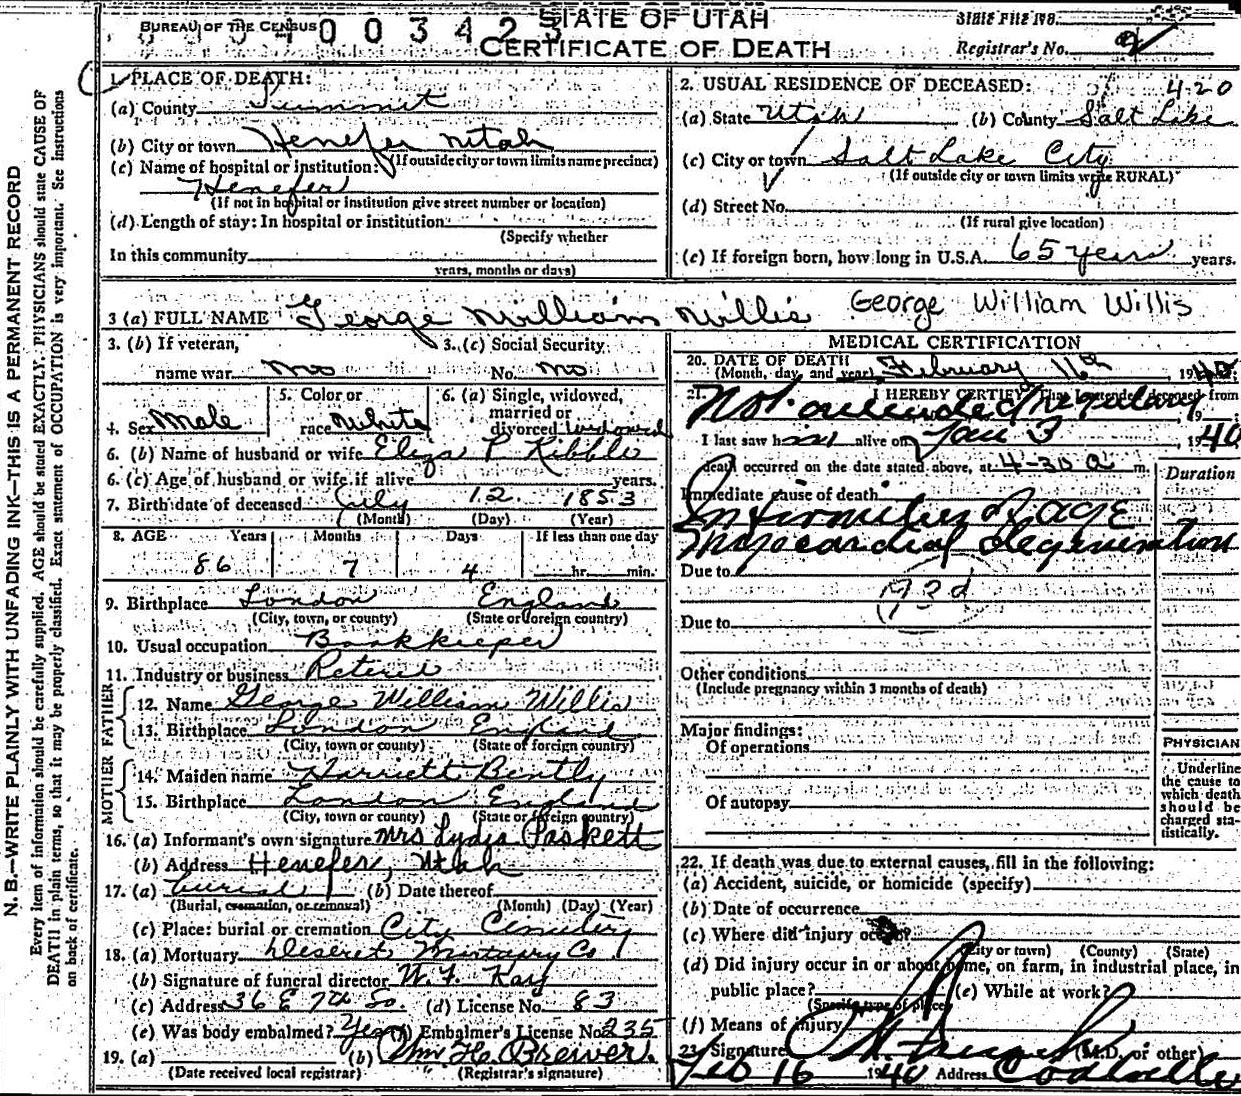 STATE OF UTAH
BUREAU OF THE CENSUS 003423
CERTIFICATE OF DEATH
STATE FILE NO.
Registrar's No. 2
N. B.—WRITE PLAINLY WITH UNFADING INK—THIS IS A PERMANENT RECORD
Every item of information should be carefully supplied. AGE should be stated EXACTLY. PHYSICIANS should state CAUSE OF
DEATH in plain terms, so that it may be properly classified. Exact statement of OCCUPATION is very important. See instructions
on back of certificate.
1. PLACE OF DEATH:
(a) County Summit
(b) City or town Henefer Utah
(If outside city or town limits name precinct)
(c) Name of hospital or institution:
Henefer
(If not in hospital or institution give street number or location)
(d) Length of stay: In hospital or institution
(Specify whether
In this community
years, months or days)
2. USUAL RESIDENCE OF DECEASED: 420
(a) State Utah (b) County Salt Lake
(c) City or town Salt Lake City
(If outside city or town limits write RURAL)
(d) Street No.
(If rural give location)
(e) If foreign born, how long in U.S.A. 65 years years.
3 (a) FULL NAME George William Willis George William Willis
3. (b) If veteran, 3. (c) Social Security
name war no No. no
4. Sex Male 5. Color or race White 6. (a) Single, widowed, married or divorced widowed
6. (b) Name of husband or wife Eliza P Kibble
6. (c) Age of husband or wife if alive years.
7. Birth date of deceased July 12 1853
(Month) (Day) (Year)
8. AGE Years Months Days If less than one day
86 7 4 hr. min.
9. Birthplace London England
(City, town, or county) (State or foreign country)
10. Usual occupation Bookkeeper
11. Industry or business Retired
FATHER
12. Name George William Willis
13. Birthplace London England
(City, town or county) (State of foreign country)
MOTHER
14. Maiden name Harriett Bently
15. Birthplace London England
(City, town or county) (State or foreign country)
16. (a) Informant's own signature Mrs Lydia Paskett
(b) Address Henefer, Utah
17. (a) burial (b) Date thereof
(Burial, cremation, or removal) (Month) (Day) (Year)
(c) Place: burial or cremation City Cemetery
18. (a) Mortuary Deseret Mortuary Co
(b) Signature of funeral director W. F. Kay
(c) Address 36 E 7th So. (d) License No. 83
(e) Was body embalmed? Yes (f) Embalmer's License No. 235
19. (a) (b) Wm H. Brewer.
(Date received local registrar) (Registrar's signature)
MEDICAL CERTIFICATION
20. DATE OF DEATH
(Month, day, and year) February 16th 1940
21. I HEREBY CERTIFY, That I attended deceased from
Not attended regularly 19
I last saw him alive on Jan 3 1940
death occurred on the date stated above, at 4-30 a m.
Duration
Immediate cause of death
Infirmities of age
Myocardial degeneration
Due to
93d
Due to
Other conditions
(Include pregnancy within 3 months of death)
Major findings:
Of operations
Of autopsy
PHYSICIAN
Underline
the cause to
which death
should be
charged sta-
tistically.
22. If death was due to external causes, fill in the following:
(a) Accident, suicide, or homicide (specify)
(b) Date of occurrence
(c) Where did injury occur?
(City or town) (County) (State)
(d) Did injury occur in or about home, on farm, in industrial place, in
public place? (e) While at work?
(Specify type of place)
(f) Means of injury
23. Signature (M.D. or other)
Feb 16 1940 Address Coalville